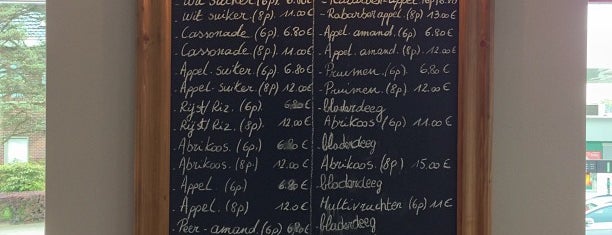 - wit suiker (6p) 6.80€
- wit suiker (8p) 11.00€
- Cassonade (6p) 6.80€
- Cassonade. (8p) 11.00€
- Appel. suiker (6p) 6.80€
- Appel. suiker (8p) 12.00€
- Rijst/Riz. (6p) 6.80€
- Rijst/Riz. (8p) 12.00€
- Abrikoos. (6p) 6.80€
- Abrikoos. (8p) 12.00€
- Appel. (6p) 6.80€
- Appel. (8p) 12.0€
- Peer - amand. (6p) 6.80€
- Rabarber appel (6p)
- Rabarber appel. (8p) 13.00€
- Appel amand. (6p) 6.80€
- Appel. amand. (8p) 12.00€
- Pruimen. (6p) 6.80€
- Pruimen. (8p) 12.00€
- bladerdeeg
Abrikoos (6p) 11.00€
- bladerdeeg
Abrikoos. (8p) 15.00€
- bladerdeeg
Multivruchten (6p) 11€
- bladerdeeg